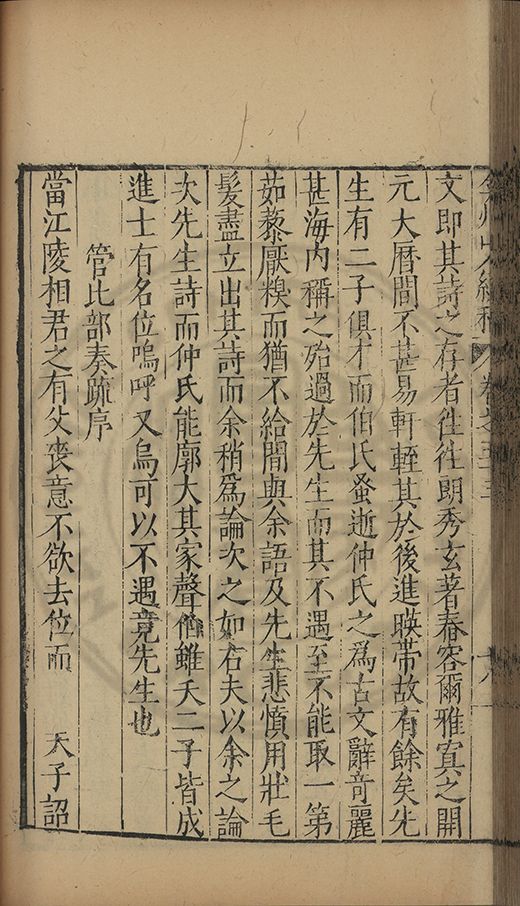 弇州山人續稿 卷之
文即其詩之存者徃徃朗秀玄著舂容爾雅寘之開
元大曆間不甚易軒輊其於後進暎帶故有餘矣先
生有二子俱才而伯氏蚤逝仲氏之爲古文辭竒麗
甚海内稱之殆過於先生而其不遇至不能取一第
茹藜厭糗而猶不給間與余語及先生悲憤用壯毛
髮盡立出其詩而余稍爲論次之如右夫以余之論
次先生詩而仲氏能廓大其家聲雖夭二子皆成
進士有名位嗚呼又烏可以不遇竟先生也
管比部奏疏序
當江陵相君之有父喪意不欲去位而 天子詔